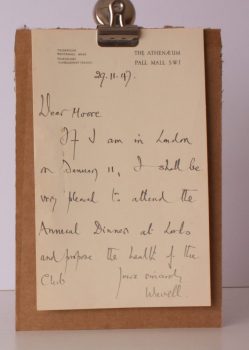 THE ATHENÆUM
PALL MALL SW1
29.11.47.
Dear Moore
If I am in London
on January 11, I shall be
very pleased to attend the
Annual Dinner at Lords
and propose the health of the
Club
Yours sincerely
Wavell.